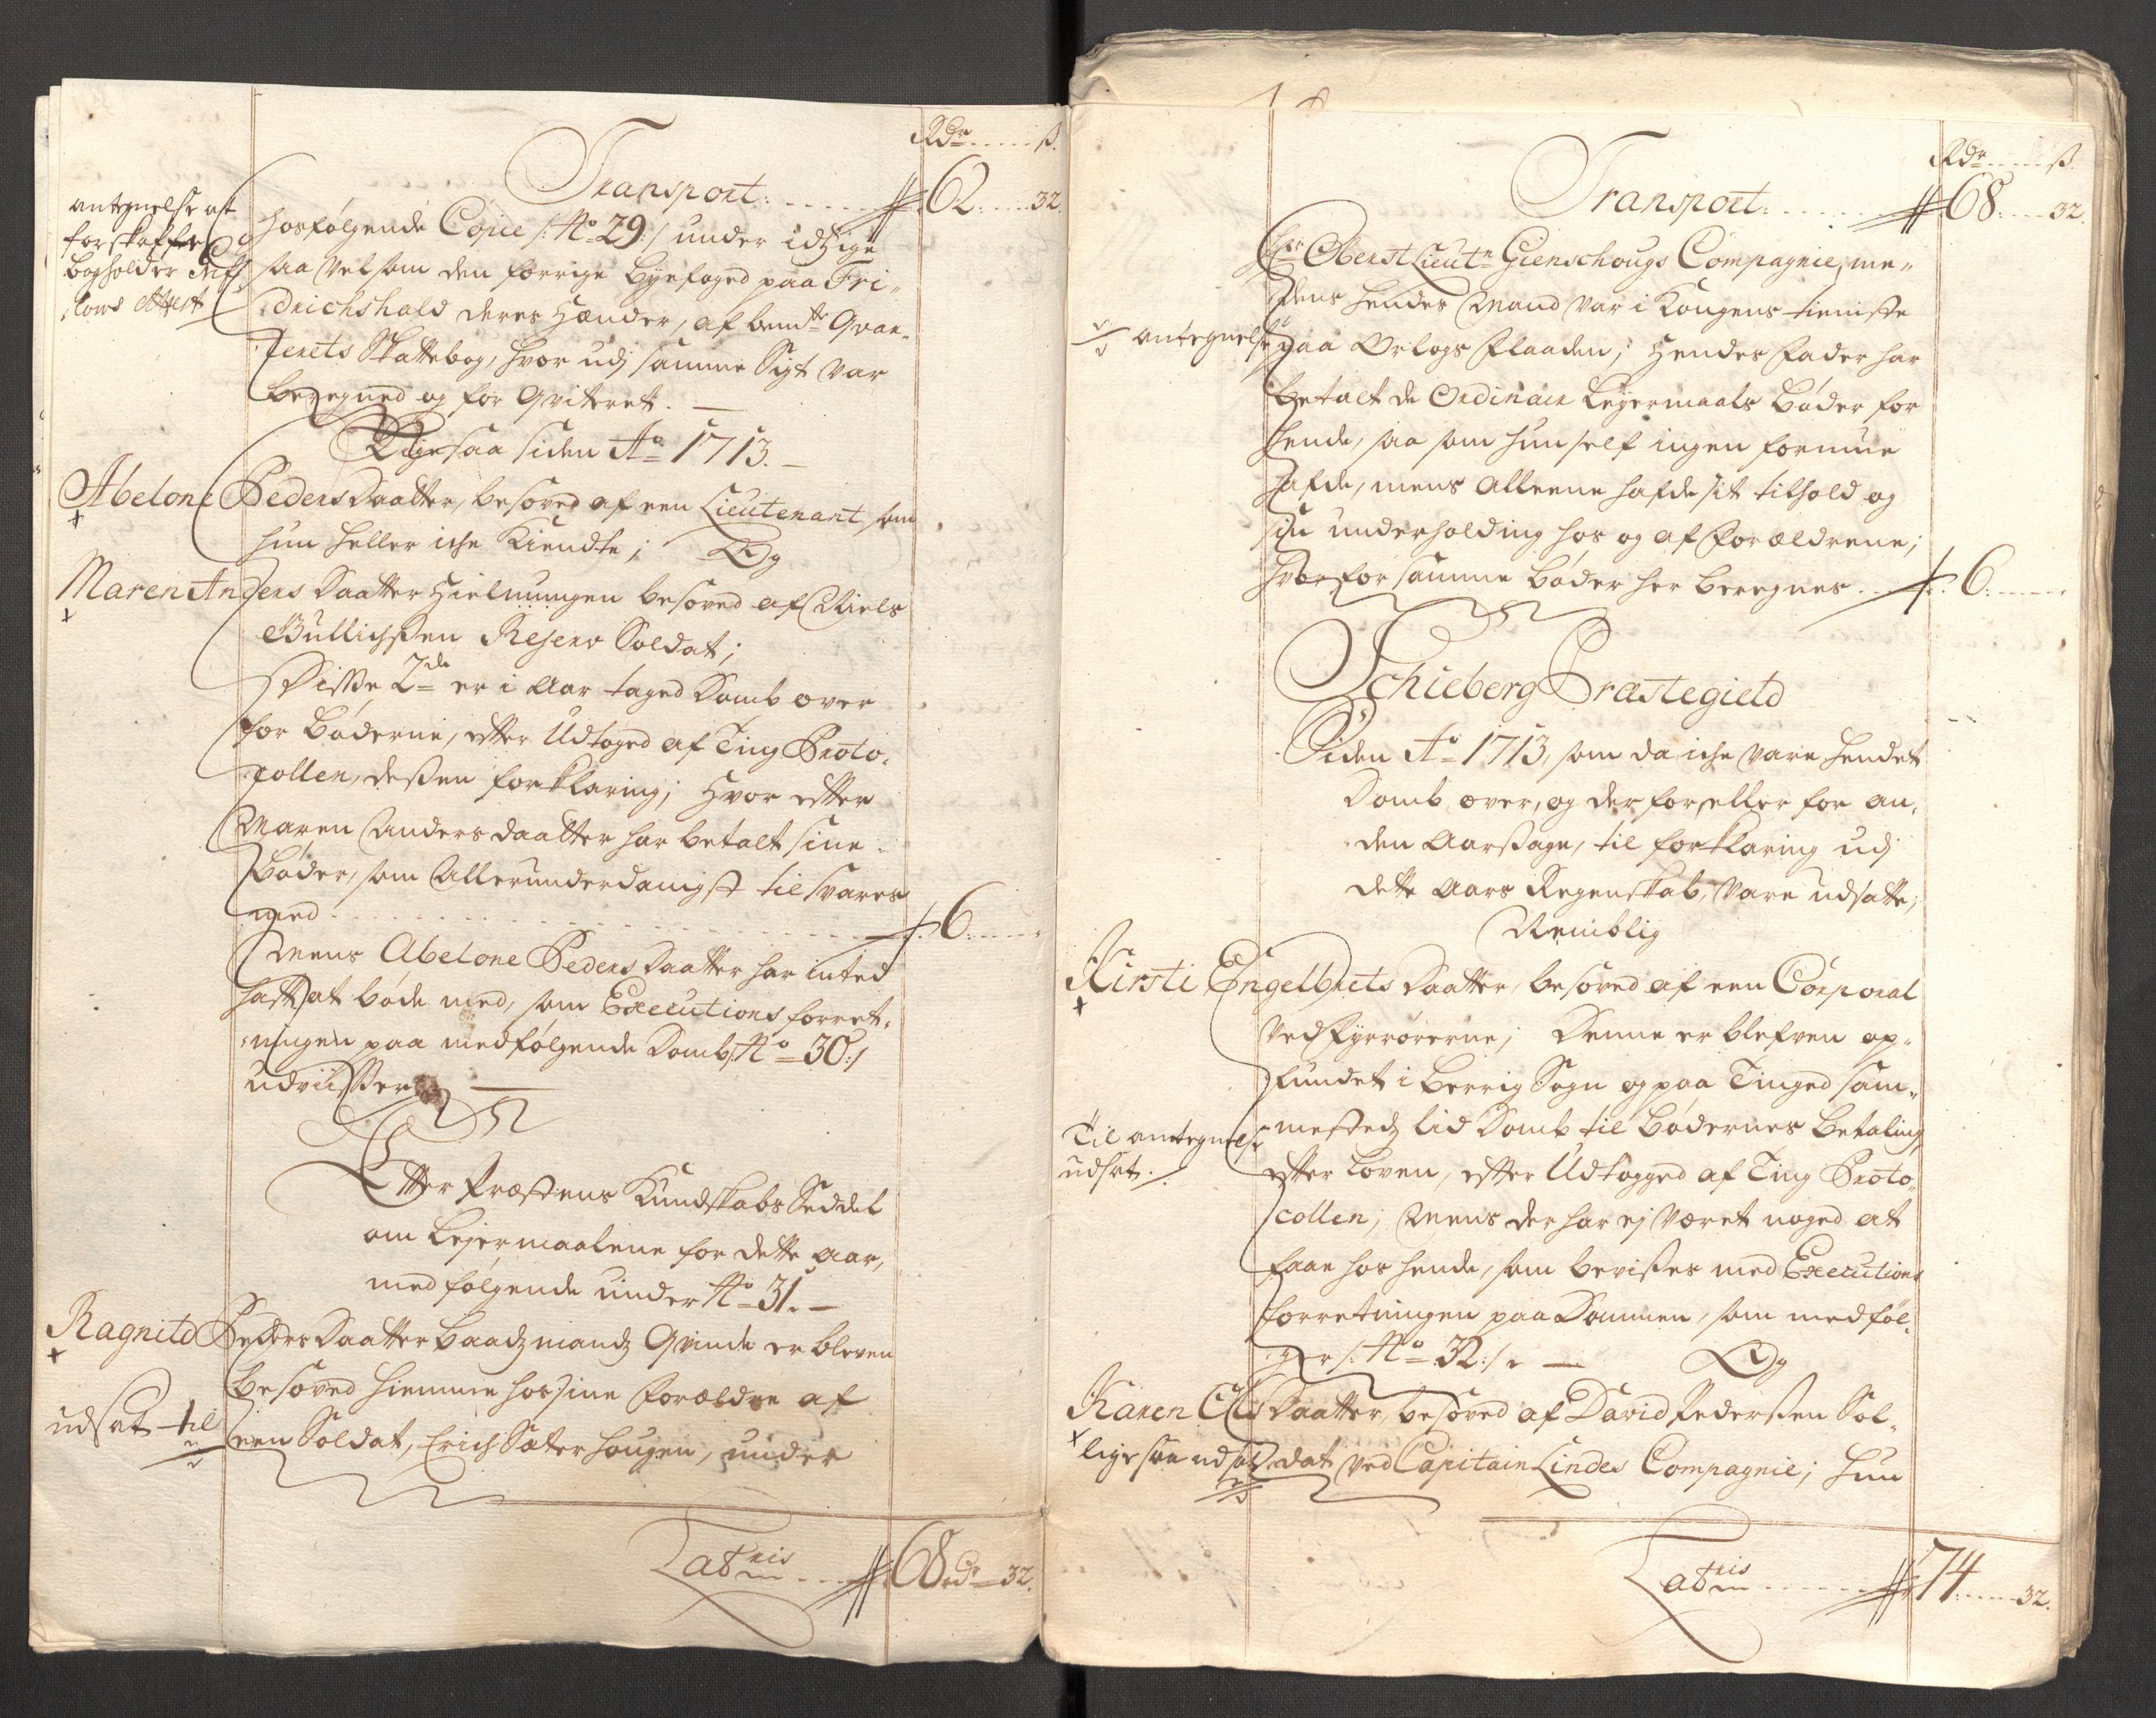 Rdr ß.
Transport: 62 32.
antegnelse at
forskaffe
bogholder
lows Attest
hosfølgende Copie /: No 29 :/ under idtzige
saa Vel som den forrige byefoged paa Fri„
drichshald deres Hænder, af bemte Qvar„
terets Skattebog, hvor udj samme Sigt var
beregned og for Qviteret.
Ligesaa siden Ao 1713.
Abelone Peders Daatter, besoved af een Lieutenant, som
hun heller iche Kiendte; Og
Maren Anders Daatter Hielmungen besoved af Niels
Gullichssen Reserv Soldat;
Disse 2de er i Aar taged Domb over
for bøderne, efter Udtoged af Ting Proto„
collen, dessen forklaring; Hvor efter
Maren Anders daatter har betalt sine
bøder, som Allerunderdanigst til svares
med 6.
Mens Abelone Peders Daatter har inted
hafft at bøde med, som Executions forret„
ningen paa medfølgende Domb /: No 30 :/
udviisser
Effter Præstens Kundskabs Seddel
om Lejermaalene for dette Aar,
medfølgende under No 31.
Ragnild Peders Daatter baadzmandz Qvinde er bleven
besoved hiemme hos sine Forældre af
een Soldat, Erich Sæterhougen, under
udsat til
Latris 68 rdr 32.
Rdr ß.
Transport: 68 32.
Hr Oberst Lieutn Gienschougs Compagnie, me„
dens hendes Mand var i Kongens tieniste
paa Orlogs Flaaden; Hendes Fader har
antegnelse
betalt de Ordinair Lejermaals bøder for
hende, saa som hun self ingen formue
hafde, mens alleene hafde sit tilhold og
sin underholding hos og af Forældrene;
hvorfor samme bøder her beregnes 6.
Schieberg Præstegield
Siden Ao 1713, som da iche vare hendet
Domb over, og derfor, eller for an„
den Aarsage, til forklaring udj
dette Aars Regenskab, vare udsatte;
Nemblig
Kirsti Engelbrets Daatter, besoved af een Corporal
ved Fyrrørerne; Denne er blefven op„
fundet i Berrig Sogn og paa Tinged sam„
mestedz lid Domb til bødernes betaling
Til antegnelse
udsat.
efter Loven, efter Udtogged af Ting Proto„
collen; Mens der har ej været noged at
faae hos hende, som bevisses med Executions
forretningen paa Dommen, som medføl„
ger /: No 32 :/ Og
Karen Ols Daatter, besoved af David Pederssen Sol„
dat ved Capitain Lindes Compagnie; hun
ligesaa udsat
Latris 74 32.